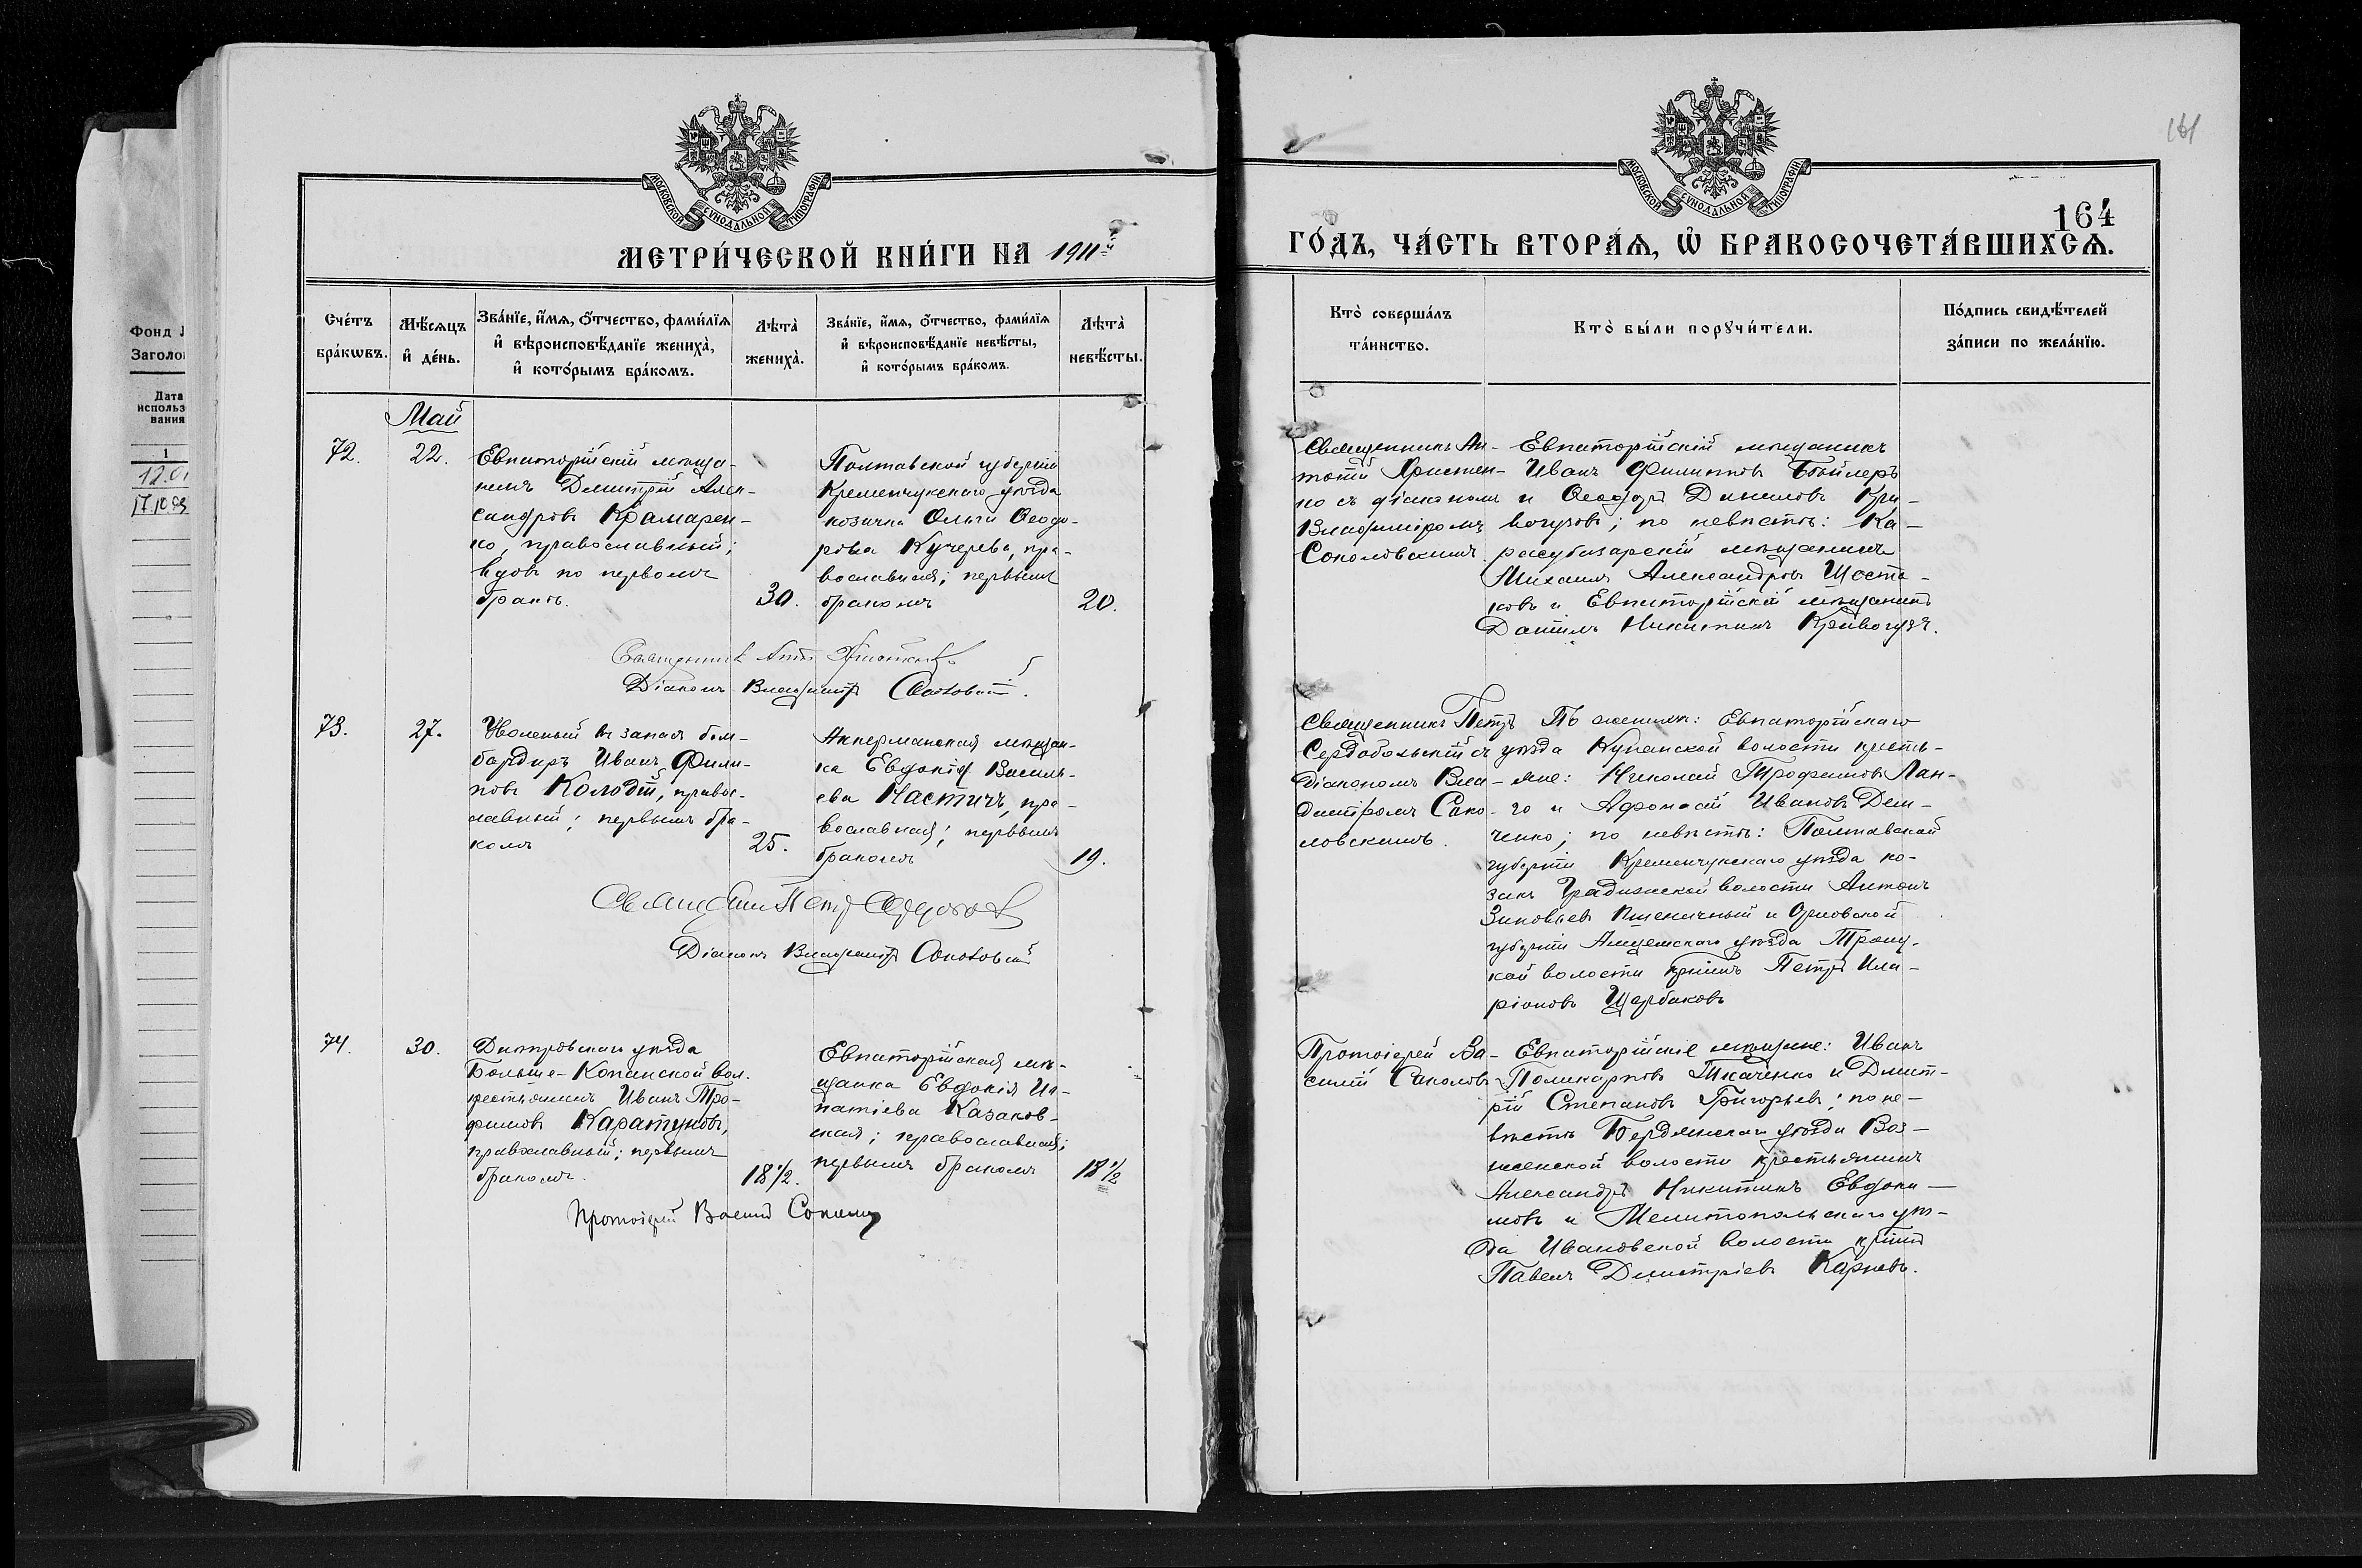 Фонд
Заголо
Дата
использ
вания
1
МОСКОВСКОЙ СѴНОДАЛЬНОЙ ТИПОГРАФІИ
МЕТРИ́ЧЕСКОЙ КНИ́ГИ НА 1911й
Сче́тъ бра́кѡвъ.
Мѣ́сяцъ и҆ де́нь.
Зва́нїе, и҆́мѧ, ѻ҆́тчество, фами́лїѧ
и҆ вѣроисповѣ́данїе жениха̀,
и҆ кото́рымъ бра́комъ.
Лѣта̀ жениха̀.
Зва́нїе, и҆́мѧ, ѻ҆́тчество, фами́лїѧ
и҆ вѣроисповѣ́данїе невѣ́сты,
и҆ кото́рымъ бра́комъ.
Лѣта̀ невѣ́сты.
Май
72.
22.
Евпаторійскій мѣща-
нинъ Димитрій Алек-
сандровъ Крамарен-
ко, православный;
вдовъ по первомъ
бракѣ.
30.
Полтавской губерніи
Кременчукскаго уѣзда
козачка Ольга Ѳеодо-
рова Кучерева, пра-
вославная; первымъ
бракомъ
20.
Священникъ
Діаконъ Владиміръ Соколовскій.
73.
27.
Уволеный въ запасъ бом-
бардиръ Иванъ Фили-
повъ Колодій, правос-
лавный; первымъ бра-
комъ
25.
Аккерманская мѣщан-
ка Евдокія Василь-
ева Настичъ, пра-
вославная; первымъ
бракомъ
19.
Священникъ Петръ
Діаконъ Владиміръ Соколовскій
74.
30.
Днѣпровскаго уѣзда
Больше-Копанской вол.
крестьянинъ Иванъ Тро-
фимовъ Каратуновъ,
православный; первымъ
бракомъ.
18 1/2.
Евпаторійская мѣ-
щанка Евдокія Иг-
натіева Казаков-
ская; православная;
первымъ бракомъ
18 1/2
Протоіерей Василій Соколовъ
161
МОСКОВСКОЙ СѴНОДАЛЬНОЙ ТИПОГРАФІИ
164
ГО́ДЪ, ЧА́СТЬ ВТОРА́Ѧ, Ѡ҆ БРАКОСОЧЕТА́ВШИХСѦ.
Кто̀ соверша́лъ
та́инство.
Кто̀ бы́ли порꙋчи́тели.
По́дпись свидѣ́телей
за́писи по жела́нїю.
Священникъ Ан-
тоній
но съ діакономъ
Владиміромъ
Соколовскимъ
Евпаторійскій мѣщанинъ
Иванъ Филипповъ Бойлеръ
и Ѳеодоръ Даниловъ Кри-
вогузовъ; по невѣстѣ: Ка-
расубазарскій мѣщанинъ
Михаилъ Александровъ Шоста-
ковъ и Евпаторійскій мѣщанинъ
Даніилъ Никитинъ Кривогузъ.
Священникъ Петръ
Сердобольскій съ
діакономъ Вла-
диміромъ Соко-
ловскимъ.
По женихѣ: Евпаторійскаго
уѣзда Курманской волости кресть-
яне: Николай Трофимовъ Лан-
го и Афонасій Ивановъ Дем-
ченко; по невѣстѣ: Полтавской
губерніи Кременчукскаго уѣзда ко-
закъ Градижской волости Антонъ
Зиновьевъ Пшеничный и Орловской
губерніи уѣзда Троиц-
кой волости кр-нинъ Петръ Ила-
ріоновъ Щербаковъ
Протоіерей Ва-
силій Соколовъ
Евпаторійскіе мѣщане: Иванъ
Поликарповъ Ткаченко и Дмит-
рій Степановъ Григорьевъ; по не-
вѣстѣ Бердянскаго уѣзда Воз-
несенской волости крестьянинъ
Александръ Никитинъ Евдоки-
мовъ и Мелитопольскаго уѣ-
зда Ивановской волости кр-нинъ
Павелъ Димитріевъ Карпевъ.